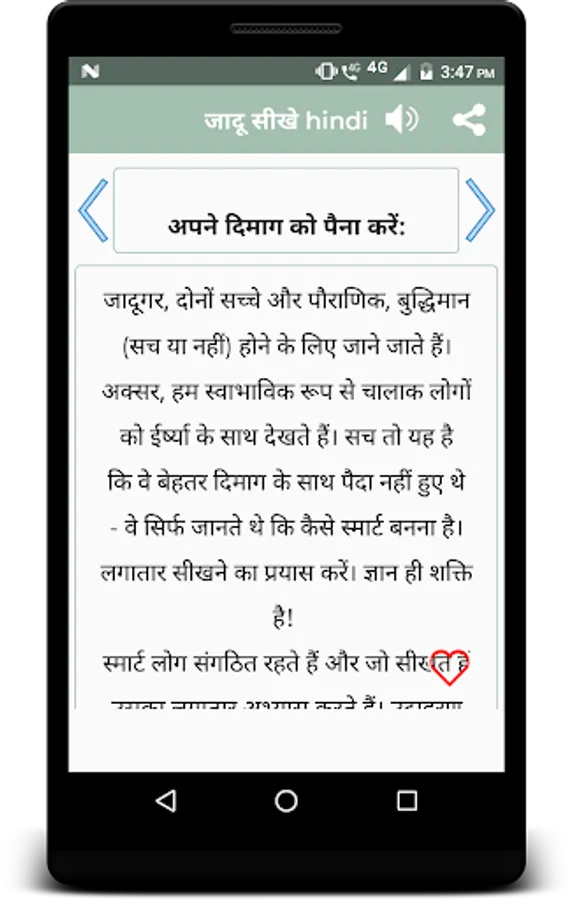 4G 4G 3:47 PM
जादू सीखे hindi
अपने दिमाग को पैना करें:
जादूगर, दोनों सच्चे और पौराणिक, बुद्धिमान
(सच या नहीं) होने के लिए जाने जाते हैं।
अक्सर, हम स्वाभाविक रूप से चालाक लोगों
को ईर्ष्या के साथ देखते हैं। सच तो यह है
कि वे बेहतर दिमाग के साथ पैदा नहीं हुए थे
- वे सिर्फ जानते थे कि कैसे स्मार्ट बनना है।
लगातार सीखने का प्रयास करें। ज्ञान ही शक्ति
है!
स्मार्ट लोग संगठित रहते हैं और जो सीखते हैं
उसका लगातार अभ्यास करते हैं। उदाहरण